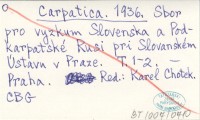 Carpatica. 1936. Sbor
pro výzkum Slovenska a Pod-
karpatské Rusi při Slovanském
Ústavu v Praze. T. 1-2. —
Praha. Red.: Karel Chotek.
CBG
BT/007/0410